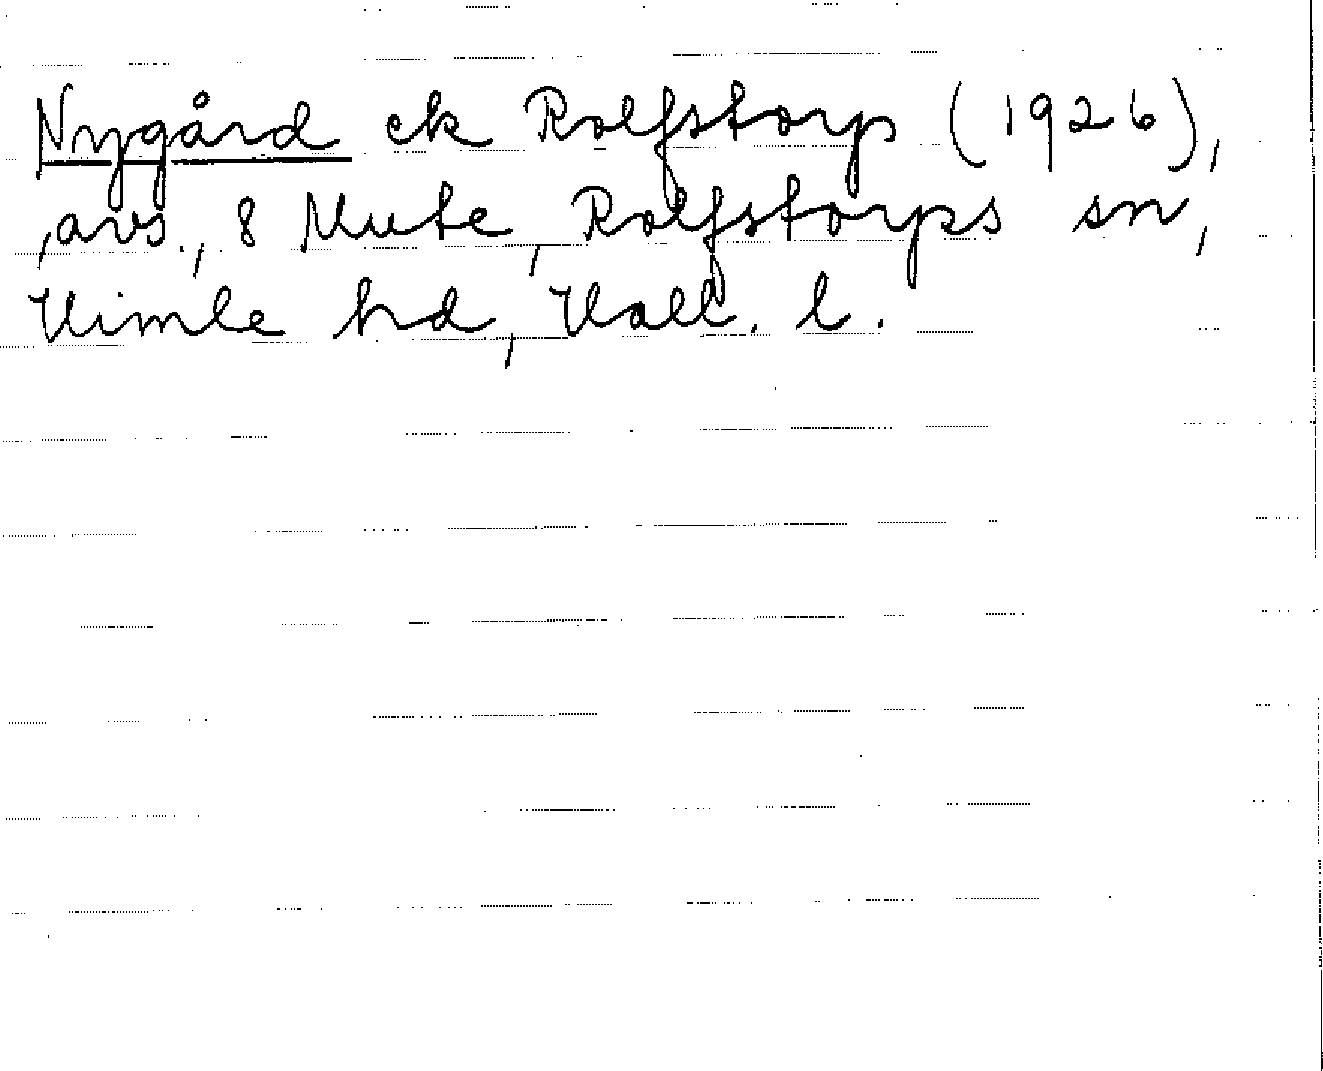 Nygård ek Rolfstorp (1926),
,avs., 8 Mute, Rolfstorps sn,
Himle hd, Hall. l.